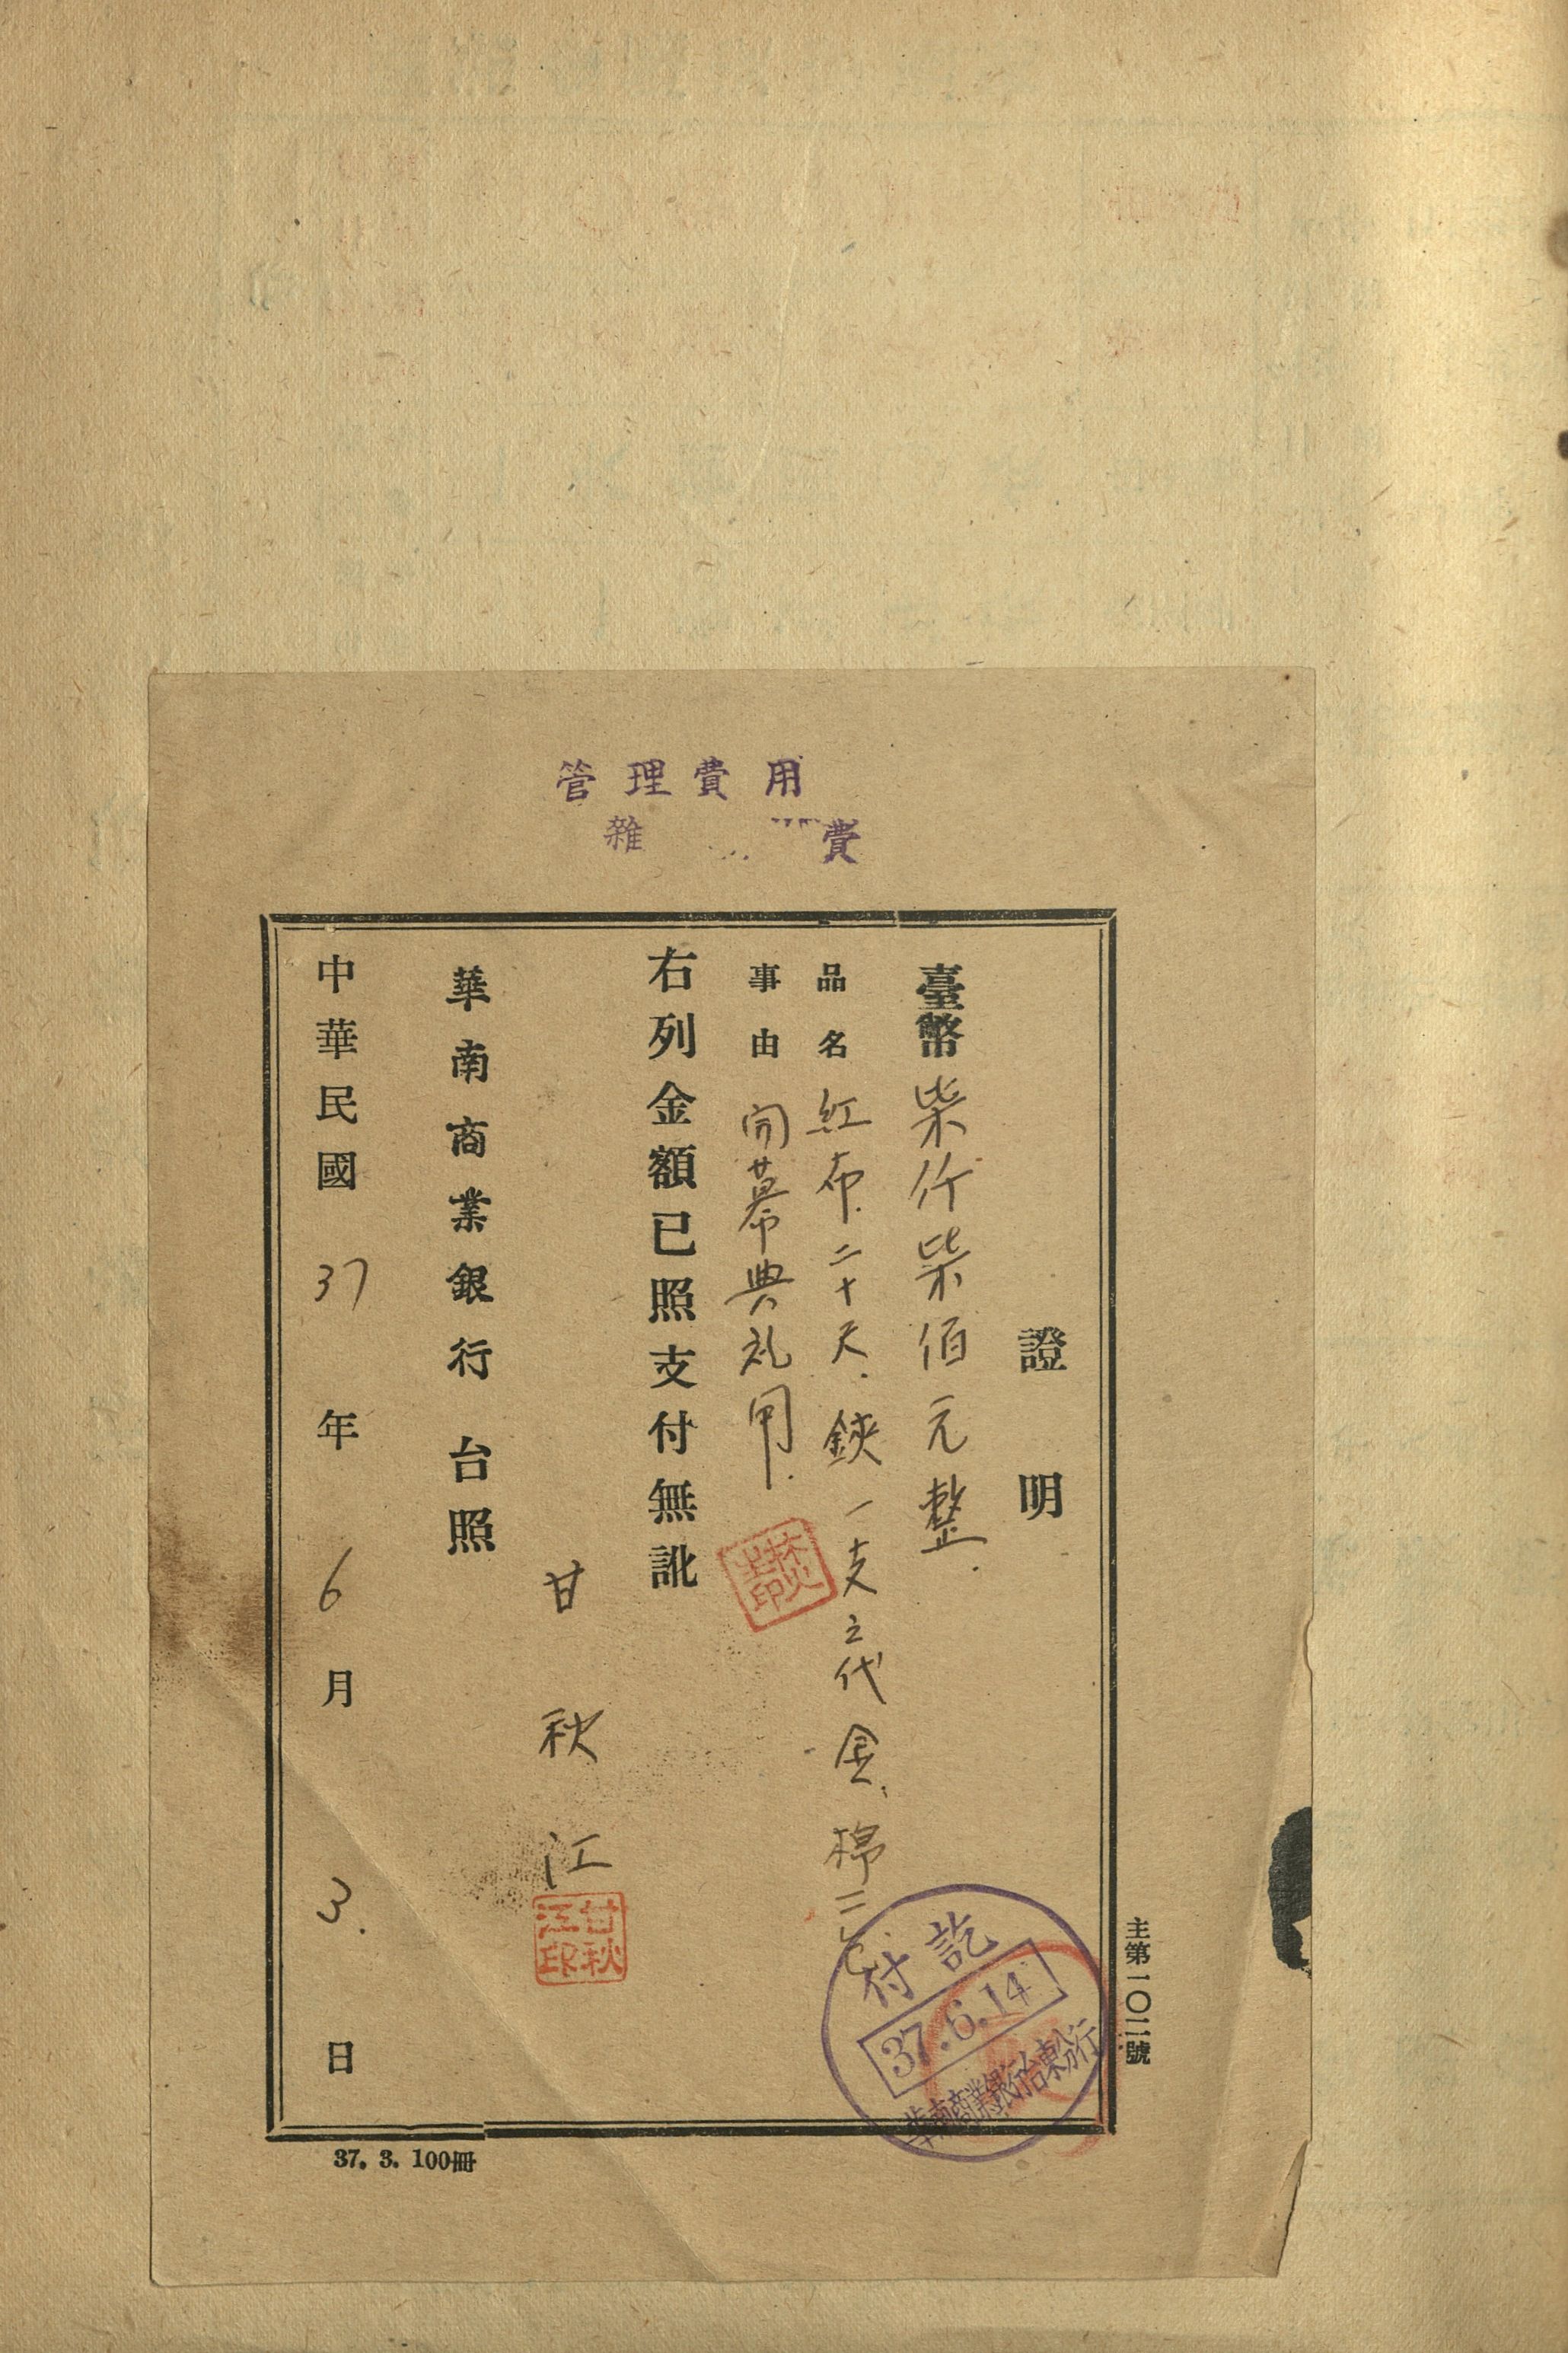 管理費用
雜費
證明
臺幣柒仟柒佰元整
品名 紅布二十尺.鋏一支之代金、棉三
事由 開幕典礼用.
右列金額已照支付無訛
甘秋江
甘秋江印
華南商業銀行 台照
中華民國37年6月3日
付訖
37.6.14
華南商業銀行台東分行
主第一〇二號
37. 3. 100冊